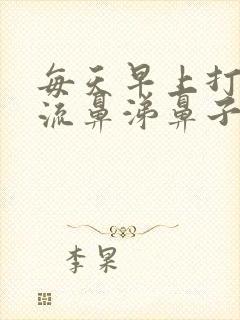 每天早上打
流鼻涕鼻子
李果